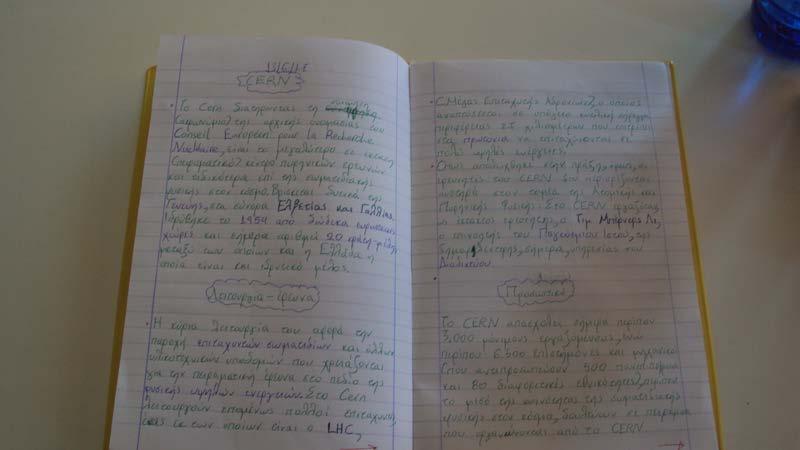 CERN
• Το Cern διατηρώντας τη συνήθη
της αρχικής ονομασίας του
Conseil Européen pour la Recherche
Nucléaire, είναι το μεγαλύτερο σε έκταση
(πειραματικό) κέντρο πυρηνικών ερευνών
και ειδικότερα επί της σωματιδιακής
φυσικής στον κόσμο. Βρίσκεται δυτικά της
Γενεύης, στα σύνορα Ελβετίας και Γαλλίας.
Ιδρύθηκε το 1954 από δώδεκα ευρωπαϊκές
χώρες και σήμερα αριθμεί 20 κράτη-μέλη
μεταξύ των οποίων και η Ελλάδα η
οποία είναι και ιδρυτικό μέλος.
Λειτουργία - έρευνα
• Η κύρια λειτουργία του αφορά την
παροχή επιταχυντών σωματιδίων και άλλων
υλικοτεχνικών υποδομών που χρειάζονται
για την πειραματική έρευνα στο πεδίο της
φυσικής υψηλών ενεργειών. Στο Cern
λειτουργούν επομένως πολλοί επιταχυντές,
ένας εκ των οποίων είναι ο LHC,
Ο Μέγας Επιταχυντής Αδρονίων, ο οποίος
αναπτύσσεται σε υπόγεια κυκλική σήραγγα
περιφέρειας 27 χιλιομέτρων που επιτρέπει
στα πρωτόνια να επιταχύνονται σε
πολύ υψηλές ενέργειες.
• Όπως αποδείχθηκε στην πράξη, όμως, οι
ερευνητές του CERN δεν περιορίζονται
αυστηρά στον τομέα της Ατομικής και
Πυρηνικής Φυσικής: Στο CERN εργαζόταν
ως έκτακτος ερευνητής, ο Τιμ Μπέρνερς Λι,
ο επινοητής του Παγκόσμιου Ιστού, της
δημοφιλέστερης, σήμερα, υπηρεσίας του
Διαδικτύου.
Προσωπικό
Το CERN απασχολεί σήμερα περίπου
3.000 μόνιμους εργαζόμενους, ενώ
περίπου 6.500 επιστήμονες και μηχανικοί
(που αντιπροσωπεύουν 500 πανεπιστήμια
και 80 διαφορετικές εθνικότητες), περίπου
το μισό της κοινότητας της σωματιδιακής
φυσικής στον κόσμο, δουλεύουν σε πειράματα
που οργανώνονται από το CERN.